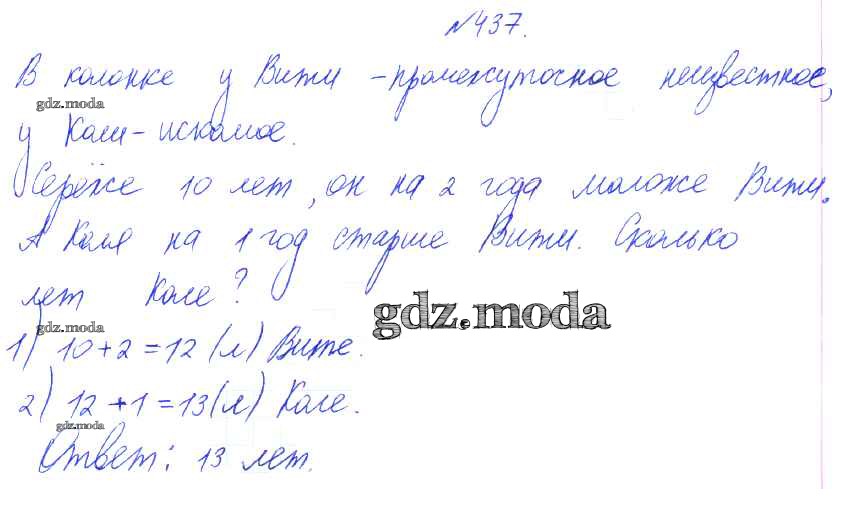 №437.
В колонке у Вити - промежуточное неизвестное,
gdz.moda
у Коли - искомое.
Серёже 10 лет, он на 2 года моложе Вити.
А Коля на 1 год старше Вити. Сколько
лет Коле?
gdz.moda
gdz.moda
1) 10+2=12 (л) Вите.
2) 12+1=13(л) Коле.
gdz.moda
Ответ: 13 лет.